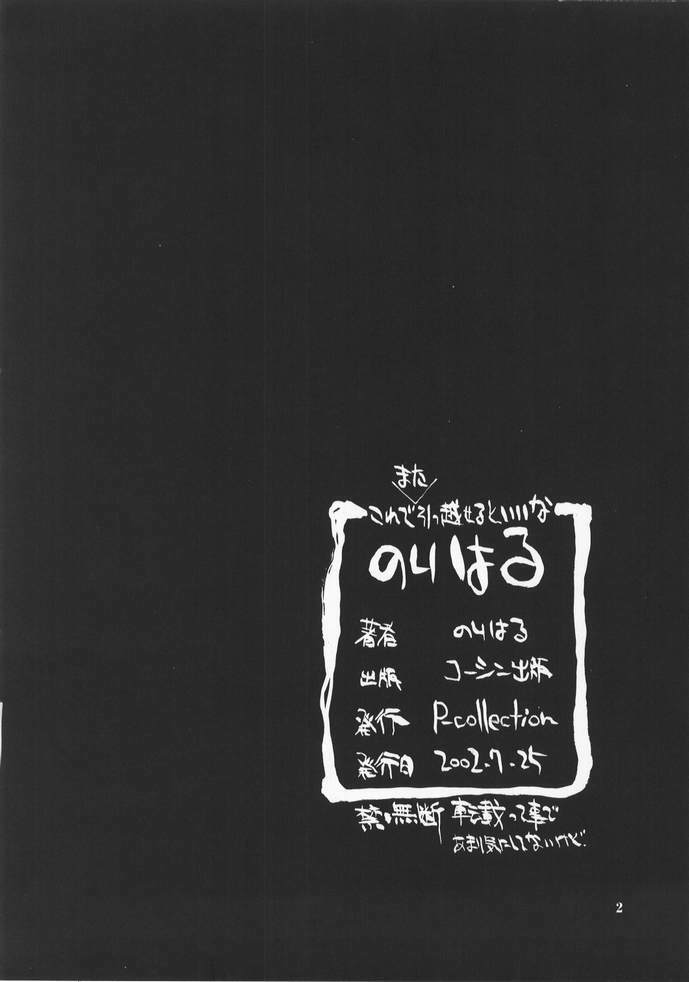 また
これで引っ越せるといいな
のりはる
著者 のりはる
出版 コーシン出版
発行 P-collection
発行日 2002.7.25
禁・無断転載って事で
あまり気にしてないけど。
2